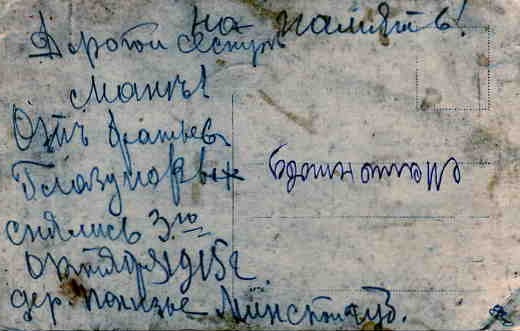 на память!
Дорогой сестре
Маня!
Отъ братьевъ
Глазуновых
снялись 3го
октября 1915г
дер. Минской губ.